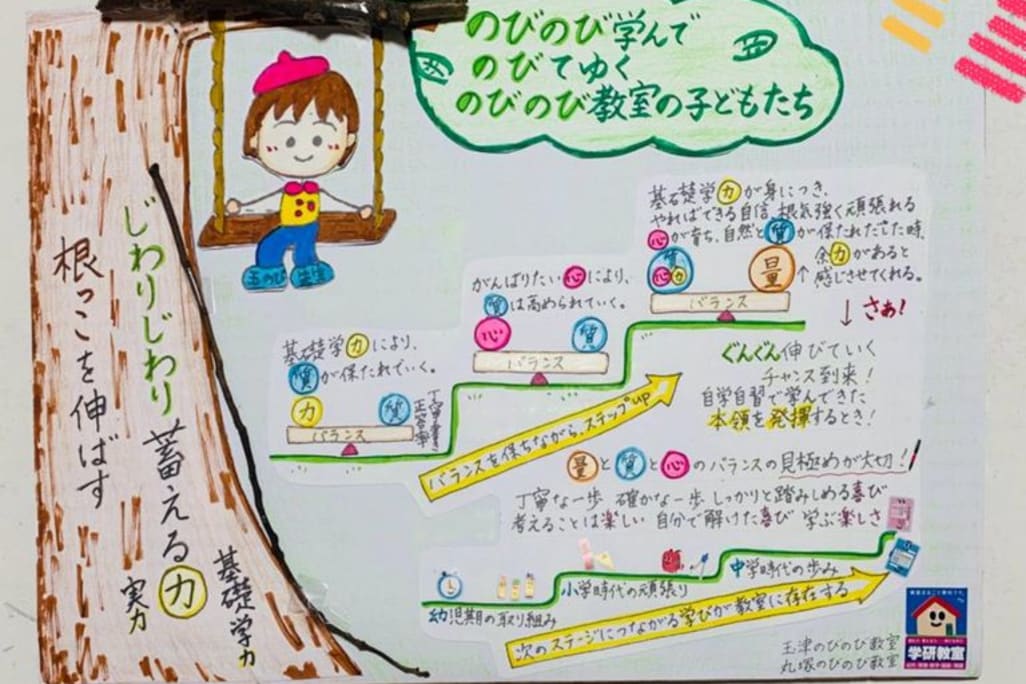 のびのび学んで
のびてゆく
のびのび教室の子どもたち
じわりじわり蓄える力
根っこを伸ばす
基礎学力
実力
基礎学力により、
質が保たれていく。
力
質
バランス
がんばりたい心により、
質は高められていく。
心
質
バランス
基礎学力が身につき、
やればできる自信、根気強く頑張れる
心が育ち、自然と質が保たれだした時、
余力があると
感じさせてくれる。
質
心力
量
バランス
さぁ!
ぐんぐん伸びていく
チャンス到来!
自学自習で学んできた
本領を発揮するとき!
バランスを保ちながら、ステップup
量と質と心のバランスの見極めが大切!
丁寧な一歩 確かな一歩 しっかりと踏みしめる喜び
考えることは楽しい 自分で解けた喜び 学ぶ楽しさ
幼児期の取り組み
小学時代の頑張り
中学時代の歩み
次のステージにつながる学びが教室に存在する
玉津のびのび教室
丸塚のびのび教室
学研教室